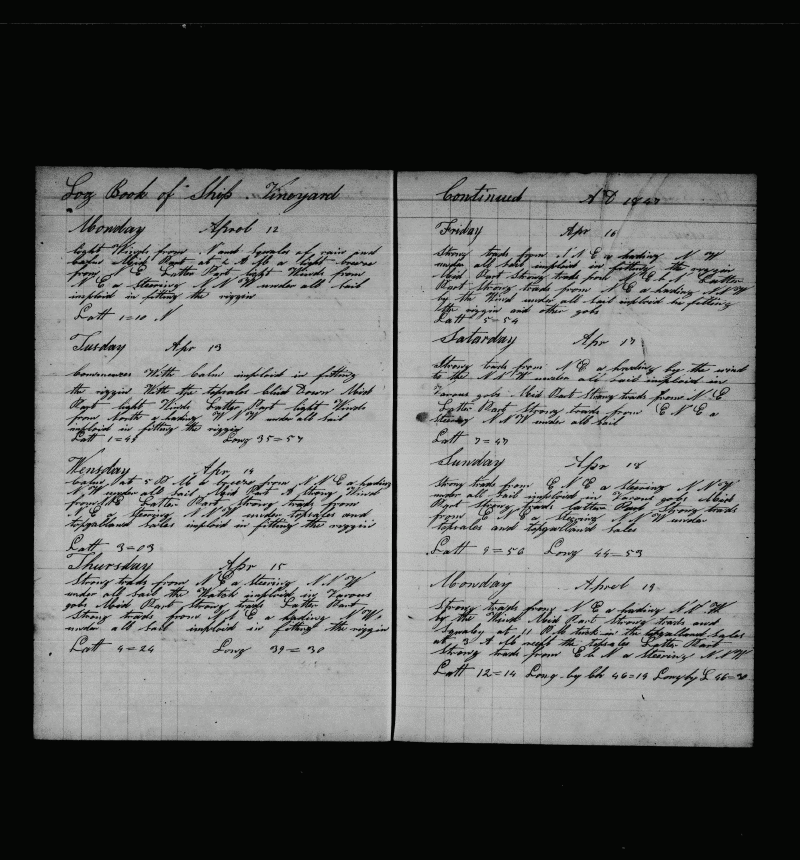 Log Book of Ship Vineyard
Monday Aprel 12
light Winds from N and Squales of rain and
Mid Part at 2 A M a light breeze
from N E Latter Part light Winds from
N E a Steering N N W under all Sail
imploid in fitting the riggin
Latt 1=10 N
Tusday Apr 13
Commences With Calm imploid in fitting
the riggin With the topsales Clued Down Mid
Part light Winds Latter Part light Winds
from North a heading W N W under all Sail
imploid in fitting the riggin
Latt 1=49 Long 35=57
Wensday Apr 14
Calm at 5 P M a breeze from N N E a heading
N W under all Sail Mid Part A Strong Wind
from N E Latter Part Strong trade from
N E a Steering N N W under topsales and
topgalland Sales imploid in fitting the riggin
Latt 3=03
Thursday Apr 15
Strong trads from N E a Steering N N W
under all Sail the Watch imploid in Varous
gobs Mid Part Strong trads Latter Part
Strong trads from N E a heading N W
under all Sail imploid in fitting the riggin
Latt 4=24 Long 39=30
Continued A D 1847
Friday Apr 16
Strong trads from N N E a heading N W
under all Sale imploid in fitting the riggin
Mid Part Strong trads from N E Latter
Part Strong trads from N E a heading N N W
by the Wind under all Sail imploid in fitting
the riggin and other gobs
Latt 5=54
Satarday Apr 17
Strong trads from N E a heading by the wind
to the N N W under all Sail imploid in
Varous gobs Mid Part Strong trads from N E
Latter Part Strong trads from E N E a
Steering N W under all Sail
Latt 7=47
Sunday Apr 18
Strong trads from E N E a Steering N N W
under all Sail imploid in Varous gobs Mid
Part Strong trads Latter Part Strong trads
from E N E a Steering N N W under
topsales and topgalland Sales
Latt 9=56 Long 44=53
Monday Aprel 19
Strong trads from N E a heading N N W
by the Wind Mid Part Strong trads and
Squaley at 11 P M took in the topgalland Sales
at 3 A M the topsales Latter Part
Strong trads from E N a Steering N N W
Latt 12=14 Long by Ch 46=19 Long by L 46=30